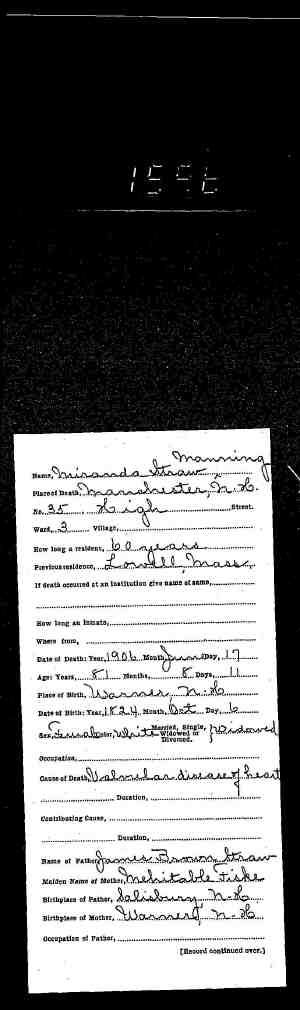 1596
Manning
Name, Miranda Straw
Place of Death, Manchester, N.H.
No. 35 High Street.
Ward, 3 Village,
How long a resident, 60 years
Previous residence, Lowell, Mass.
If death occurred at an institution give name of same,
How long an inmate,
Where from,
Date of Death: Year, 1906 Month, June Day, 17
Age: Years, 81 Months, 8 Days, 11
Place of Birth, Warner, N.H.
Date of Birth: Year, 1824, Month, Oct Day, 6
Sex, Female Color, White Married, Single, Widowed or Divorced. Widowed
Occupation,
Cause of Death, Valvular disease of heart
Duration,
Contributing Cause,
Duration,
Name of Father, James Brown Straw
Maiden Name of Mother, Mehitable Fiske
Birthplace of Father, Salisbury N.H.
Birthplace of Mother, Warner, N.H.
Occupation of Father,
[Record continued over.]